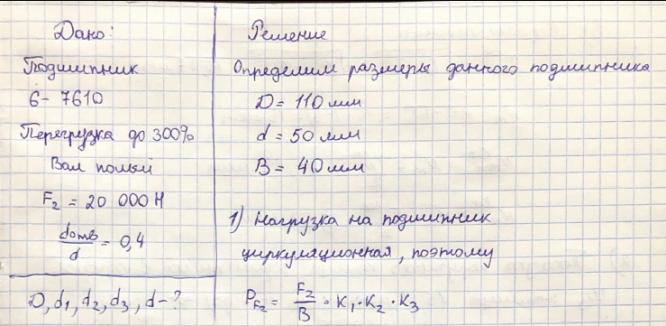 Дано:
Подшипник
6-7610
Перегрузка до 300%
Вал полый
F₂ = 20 000 Н
dотв/d = 0,4
D, d₁, d₂, d₃, d-?
Решение
Определим размеры данного подшипника
D = 110 мм
d = 50 мм
B = 40 мм
1) Нагрузка на подшипник
циркуляционная, поэтому
P_F₂ = F₂/B · K₁ · K₂ · K₃